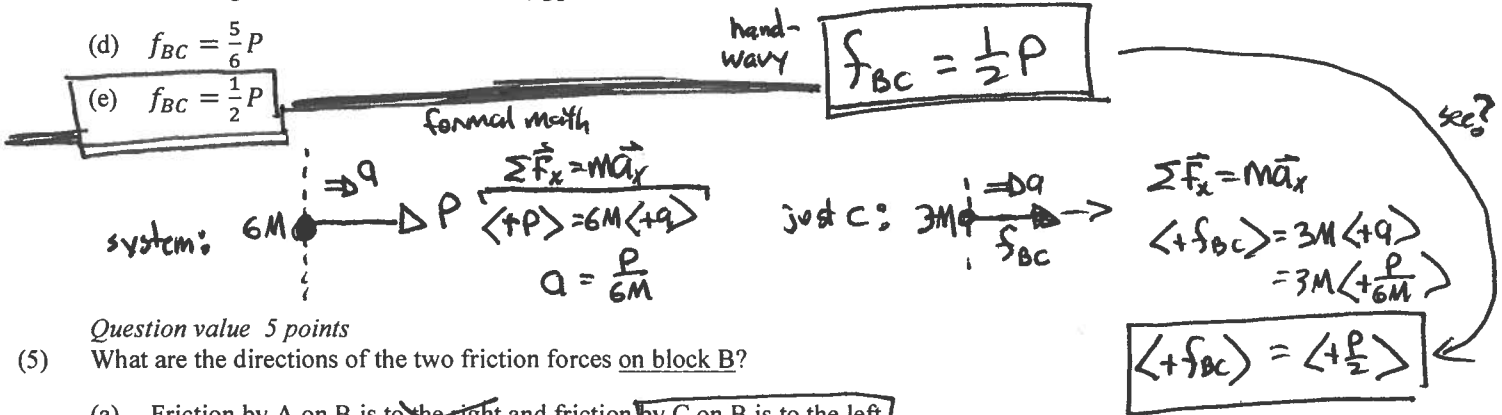 (d) f_BC = 5/6 P
(e) f_BC = 1/2 P
hand-
wavy
f_BC = 1/2 P
see?
formal math
system:
6M
⇒a
P
ΣF⃗x = ma⃗x
<+P> = 6M<+a>
a = P/6M
just C:
3M
⇒a
f_BC
ΣF⃗x = ma⃗x
<+f_BC> = 3M<+a>
= 3M<+P/6M>
<+f_BC> = <+P/2>
Question value 5 points
(5) What are the directions of the two friction forces on block B?
(a) Friction by A on B is to the right and friction by C on B is to the left